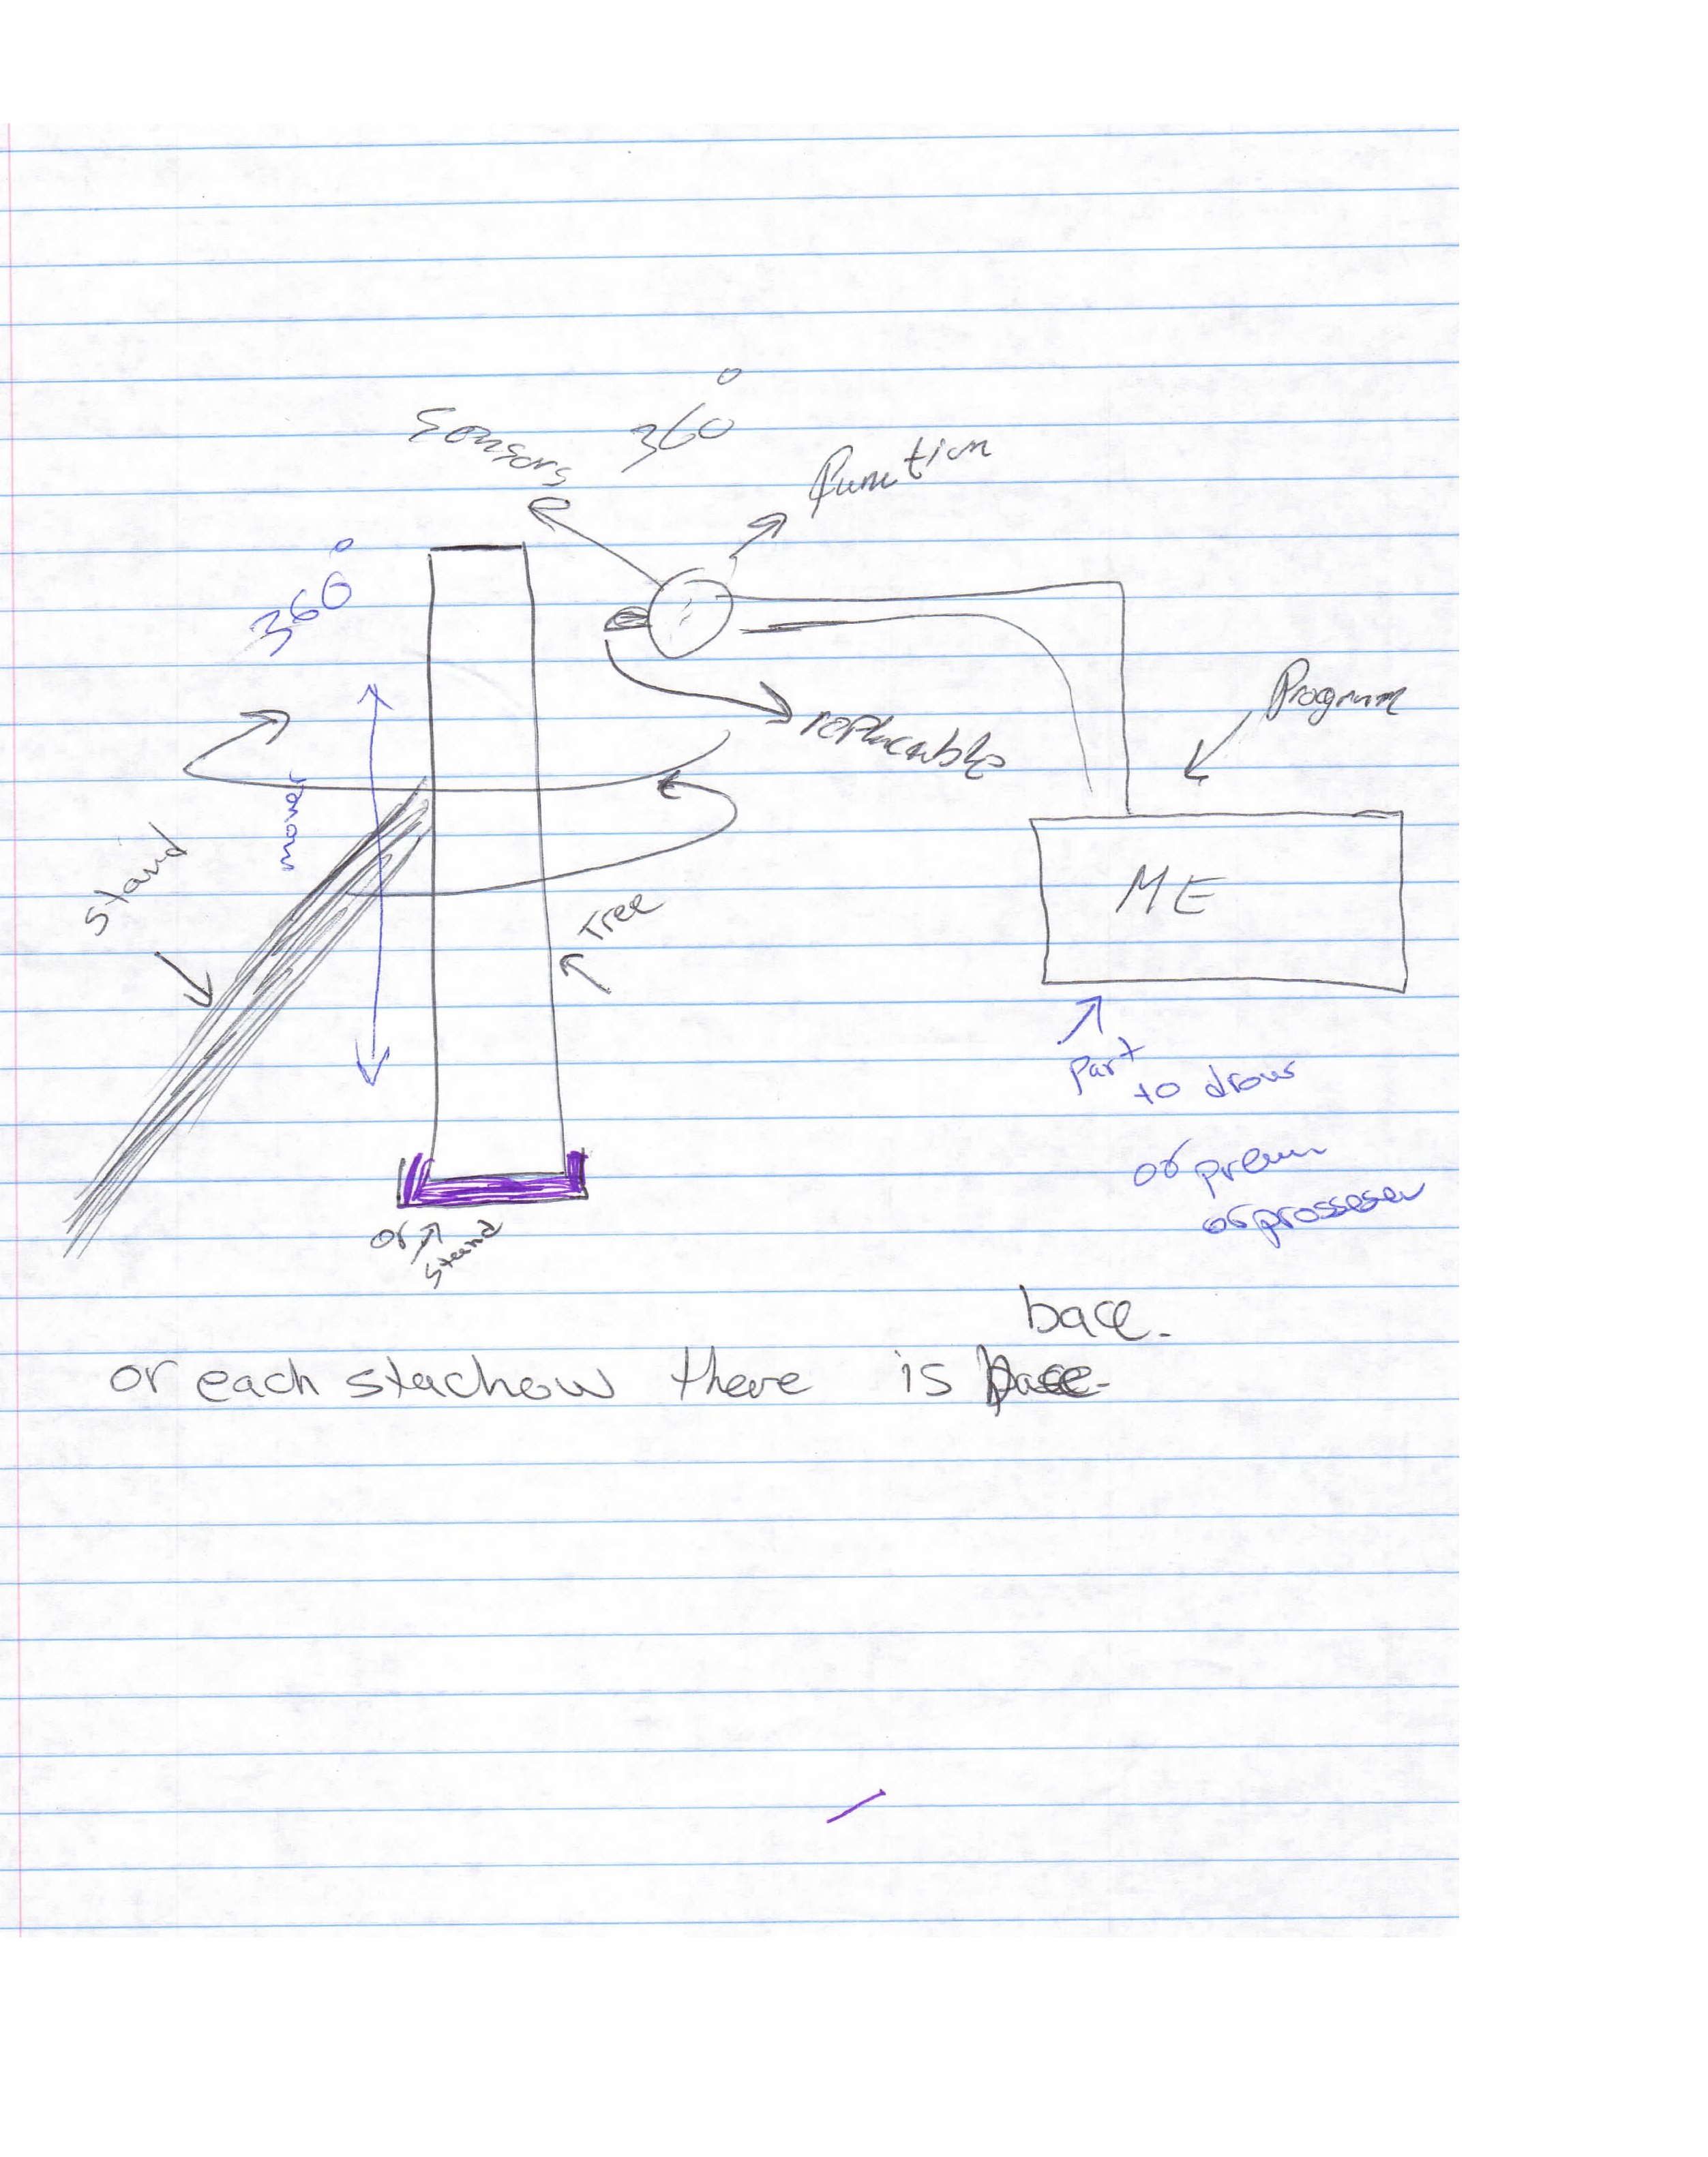 360°
Sensors
function
360°
replacable
Program
move
Stand
ME
Tree
Part
to draw
or
or prosseser
or
Stand
bace.
or each stachow there is bace-